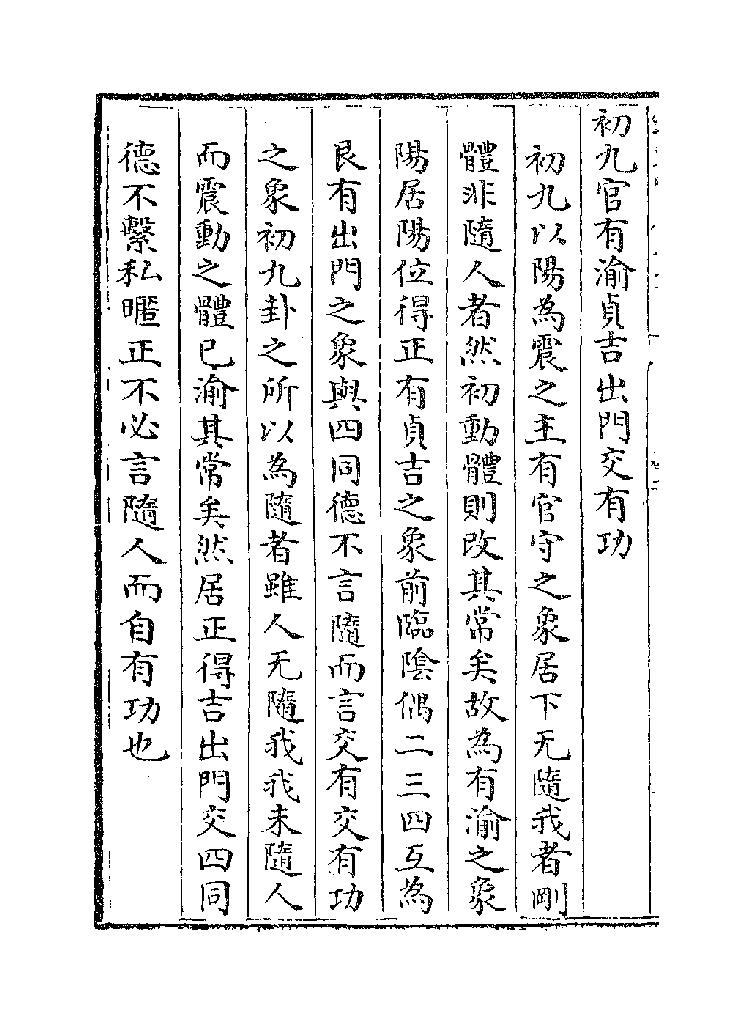 初九官有渝貞吉出門交有功
初九以陽為震之主有官守之象居下无隨我者剛
體非隨人者然初動體則改其常矣故為有渝之象
陽居陽位得正有貞吉之象前臨陰偶二三四互為
艮有出門之象與四同德不言隨而言交有交有功
之象初九卦之所以為隨者雖人无隨我我未隨人
而震動之體已渝其常矣然居正得吉出門交四同
德不繫私暱正不必言隨人而自有功也